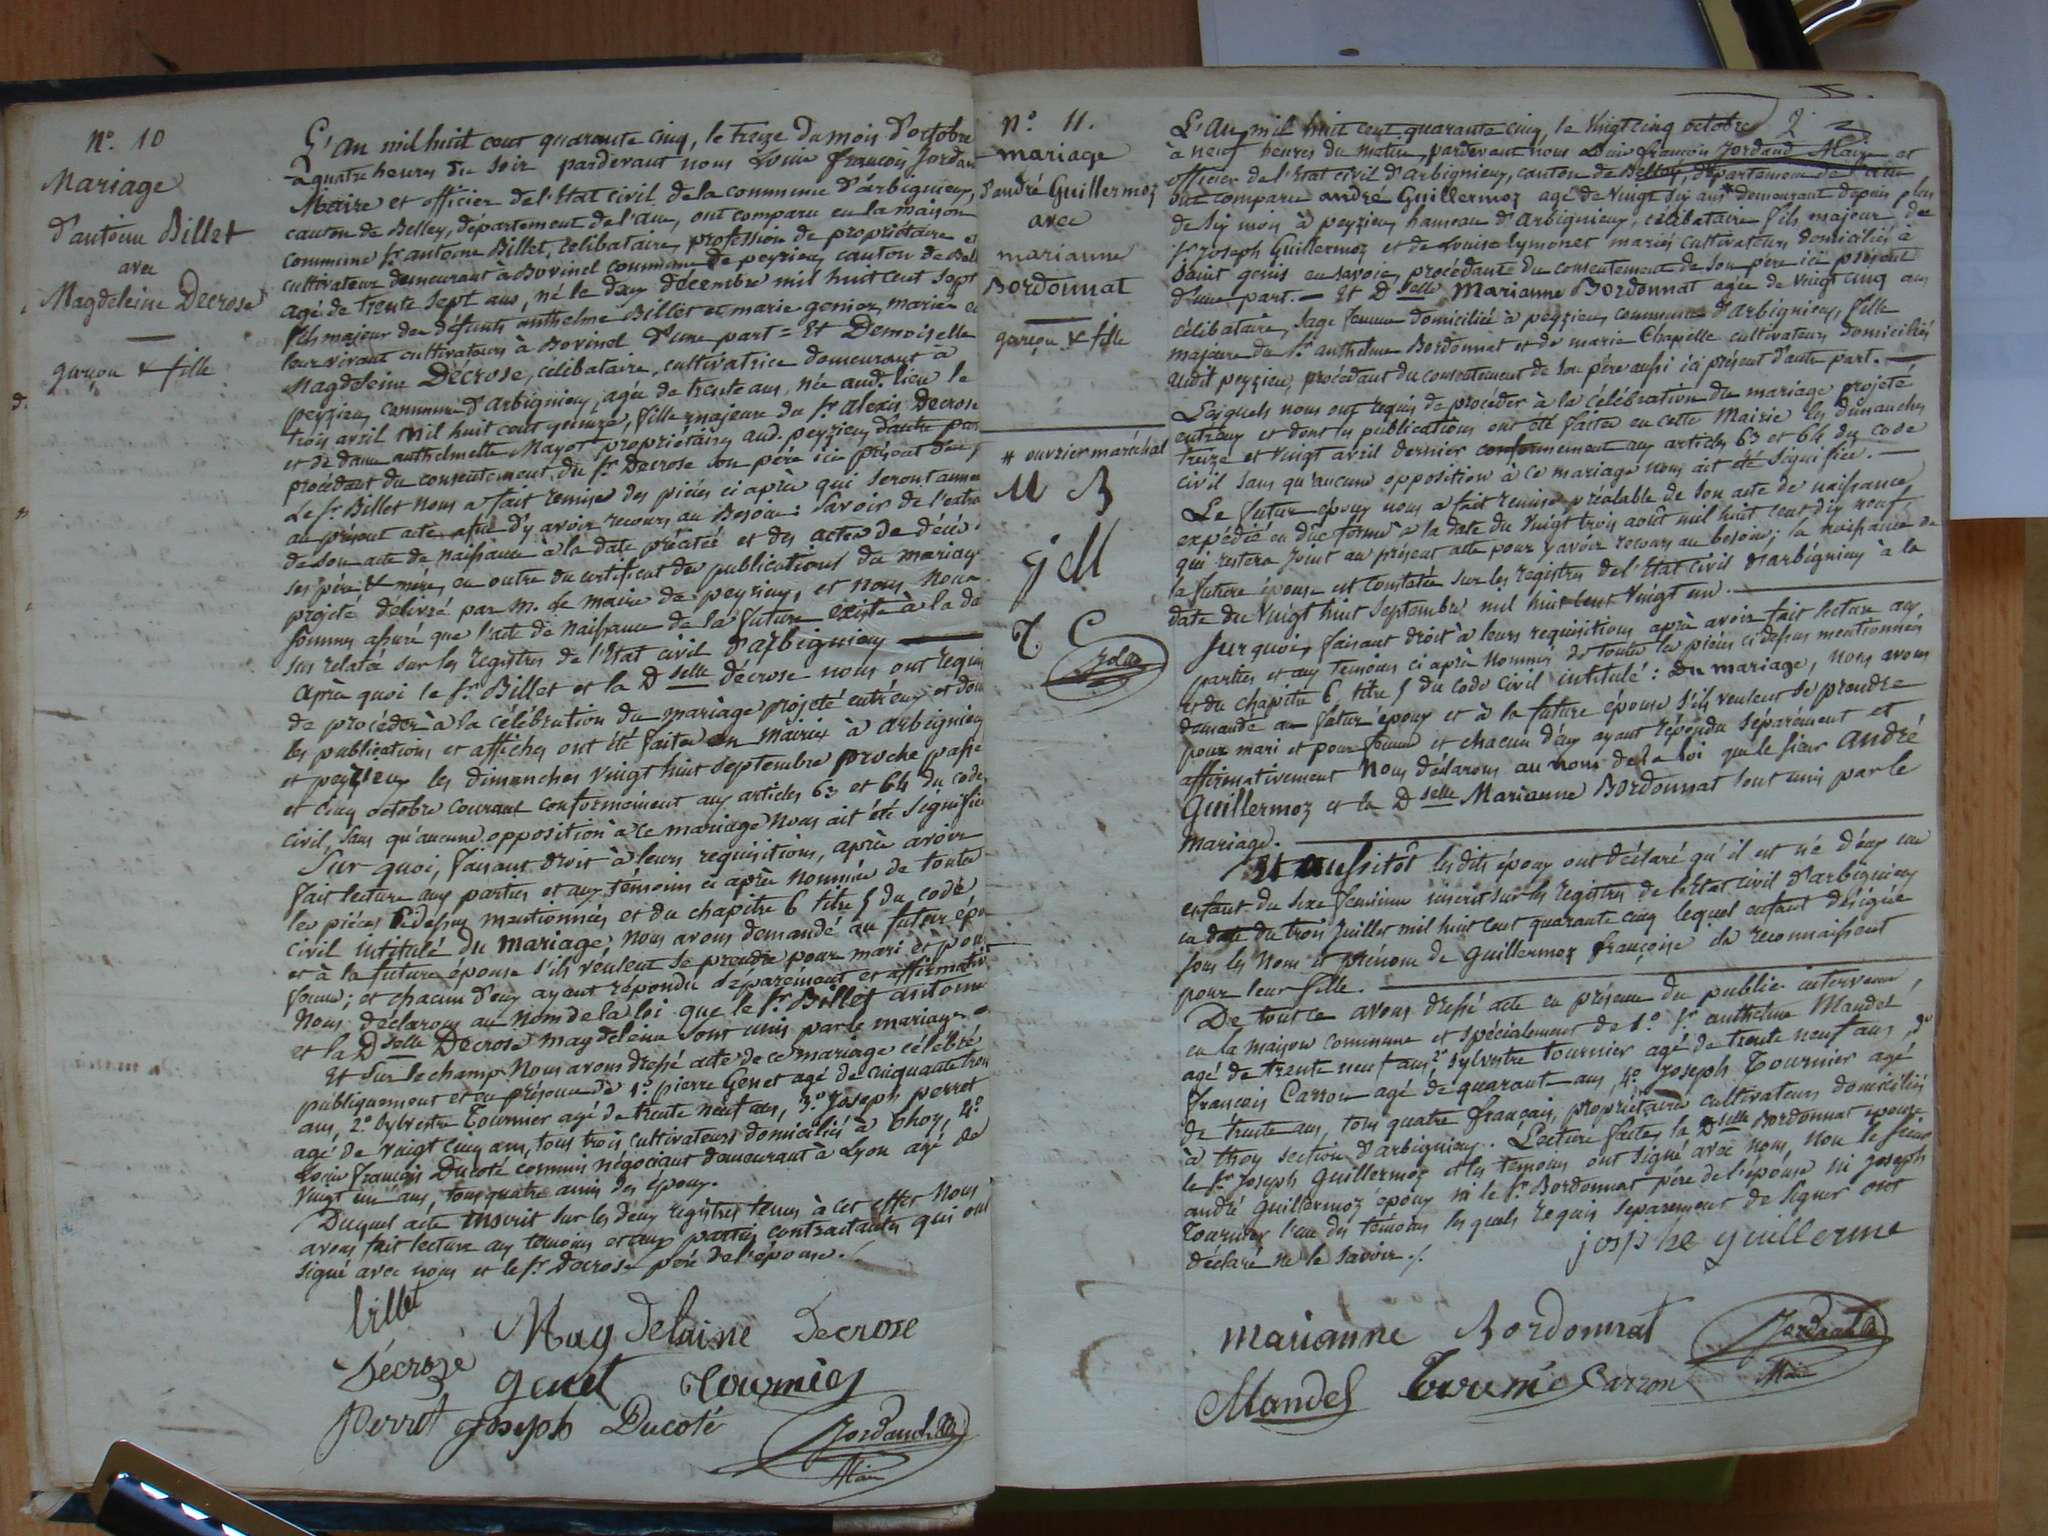 N.° 10
Mariage
d'antoine Billet
avec
Magdeleine Decrose
garçon & fille
L'an mil huit cent quarante cinq, le treize du mois d'octobre
à quatre heures du soir pardevant nous Louis françois Jordan
Maire et officier de l'Etat civil, de la commune d'arbignieu,
canton de Belley, département de l'ain, ont comparu en la maison
commune Sr. antoine Billet, célibataire, profession de propriétaire et
cultivateur demeurant à Bovinel commune de peyrieu, canton de Bell
agé de trente sept ans, né le deux décembre mil huit cent sept
fils majeur des défunts anthelme Billet et marie genier, mariés et
leur vivant cultivateurs à Bovinel d'une part = Et Demoiselle
Magdeleine Decrose, célibataire, cultivatrice demeurant à
peyzieu, commune d'Arbignieu, agée de trente ans, née aud. lieu le
trois avril mil huit cent quinze, fille majeure du Sr. alexis Decrose
et de dame anthelmette Mayot propriétaires aud. peyzieu d'autre par
procédant du consentement du Sr. Decrose son père ici présent d'une p
Le Sr. Billet nous a fait remise des pièces ci après qui seront annex
au présent acte afin d'y avoir recours au Besoin: Savoir de l'extra
de son acte de naissance à la date précitée et des actes de décè
ses père & mère, en outre du certificat des publications du mariag
projeté délivré par M. le maire de peyrieu, et nous nous
sommes assuré que l'acte de naissance de la future existe à la da
sus relatée sur les registres de l'Etat civil d'arbignieu
Après quoi le Sr. Billet et la Dselle décrose nous ont requis
de procéder à la célébration du mariage projeté entr'eux et don
les publications et affiches ont été faites en mairies à arbignieu
et peyrieu les dimanches vingt huit septembre proche passé
et cinq octobre courant conformément aux articles 63 et 64 du code
civil, sans qu'aucune opposition à ce mariage nous ait été signifiée
Sur quoi, faisant droit à leurs requisitions, après avoir
fait lecture aux parties et aux témoins ci après nommés de toutes
les pièces ci dessus mentionnées et du chapitre 6 titre 5 du code
civil intitulé du mariage, nous avons demandé au futur épo
et à la future épouse s'ils veulent se prendre pour mari et pour
femme; et chacun d'eux ayant répondu séparément et affirmativ
Nous déclarons au nom de la loi que le Sr. Billet antoine
et la Dselle Decrose magdeleine sont unis par le mariage
Et Sur le champ Nous avons dressé acte de ce mariage célébré
publiquement et en présence de 1.° pierre Genet agé de cinquante trois
ans, 2.° Sylvestre Tournier agé de trente neuf ans, 3.° Joseph perret
agé de vingt cinq ans, tous trois cultivateurs domiciliés à thoy, 4.°
Louis françois Ducoté commis négociant demeurant à Lyon agé de
vingt un ans, tous quatre amis des époux.
Duquel acte inscrit sur les deux registres tenus à cet effet nous
avons fait lecture aux témoins et aux parties contractantes qui ont
signé avec nous et le Sr. Decrose père de l'épouse ./.
billet
Magdelaine Decrose
Décroze genet Tournier
Perret joseph Ducoté
Jordan
Maire
N.° 11.
mariage
d'andré Guillermoz
avec
marianne
Bordonnat
garçon & fille
# ouvrier maréchal
M B
J M
T. C
L'an mil huit cent quarante cinq, le vingt cinq octobre
à neuf heures du matin, pardevant nous Louis françois Jordand Maire et
officier de l'Etat civil d'Arbignieu, canton de Belley, département de l'ain
ont comparu andré Guillermoz agé de vingt six ans # demeurant depuis plus
de six mois à peyzieu hameau d'arbignieu, célibataire fils majeur de
Sr Joseph Guillermoz et de Louise lymonet mariés cultivateurs domiciliés à
Saint genis en savoie, procédante du consentement de son père ici présent
d'une part. — Et Dselle Marianne Bordonnat agée de vingt cinq ans
célibataire, sage femme domiciliée à peyzieu, commune d'arbignieu, fille
majeure du Sr. anthelme Bordonnat et de marie Chapelle cultivateurs domiciliés
audit peyzieu, procédant du consentement de son père aussi ici présent d'autre part.
Lesquels nous ont requis de procéder à la célébration du mariage projeté
entr'eux et dont les publications ont été faites en cette Mairie les dimanches
treize et vingt avril dernier conformément aux articles 63 et 64 du code
civil sans qu'aucune opposition à ce mariage nous ait été signifiée.
Le futur époux nous a fait remise préalable de son acte de naissance
expédié en dûe forme à la date du vingt trois août mil huit cent dix neuf
qui restera joint au présent acte pour y avoir recours au besoin; la naissance de
la future épouse est constatée sur les registres de l'Etat civil d'arbignieu à la
date du vingt huit septembre mil huit cent vingt un.
Sur quoi, faisant droit à leurs requisitions après avoir fait lecture aux
parties et aux témoins ci après nommés de toutes les pièces ci dessus mentionnées
et du chapitre 6 titre 5 du code civil intitulé: du mariage, nous avons
demandé au futur époux et à la future épouse s'ils veulent se prendre
pour mari et pour femme et chacun d'eux ayant répondu séparément et
affirmativement Nous déclarons au nom de la loi que le sieur andré
Guillermoz et la Dselle Marianne Bordonnat sont unis par le
mariage.
Et aussitôt les dits époux ont déclaré qu'il est né d'eux un
enfant du sexe féminin inscrit sur les registres de l'Etat civil d'arbignieu
en date du trois juillet mil huit cent quarante cinq lequel enfant désigné
sous les noms et prénoms de Guillermoz françoise ils reconnaissent
pour leur fille.
De tout ce avons dressé acte en présence du public intervenu
en la maison commune et spécialement de 1.° Sr anthelme Mandel
agé de trente neuf ans, 2° Sylvestre tournier agé de trente neuf ans, 3°
françois Carron agé de quarante ans, 4.° Joseph Tournier agé
de trente ans, tous quatre français, propriétaires cultivateurs domiciliés
à thoy section d'arbignieu. Lecture faite, la Dselle Bordonnat épouse
le Sr. Joseph Guillermoz et les témoins ont signé avec nous, non le sieur
andré Guillermoz époux ni le Sr. Bordonnat père de l'épouse ni joseph
Tournier l'un des témoins les quels requis séparément de signer ont
déclaré ne le savoir ./.
josphe guillerme
marianne Bordonnat
Jordan
Maire
Mandel Tournié Carron